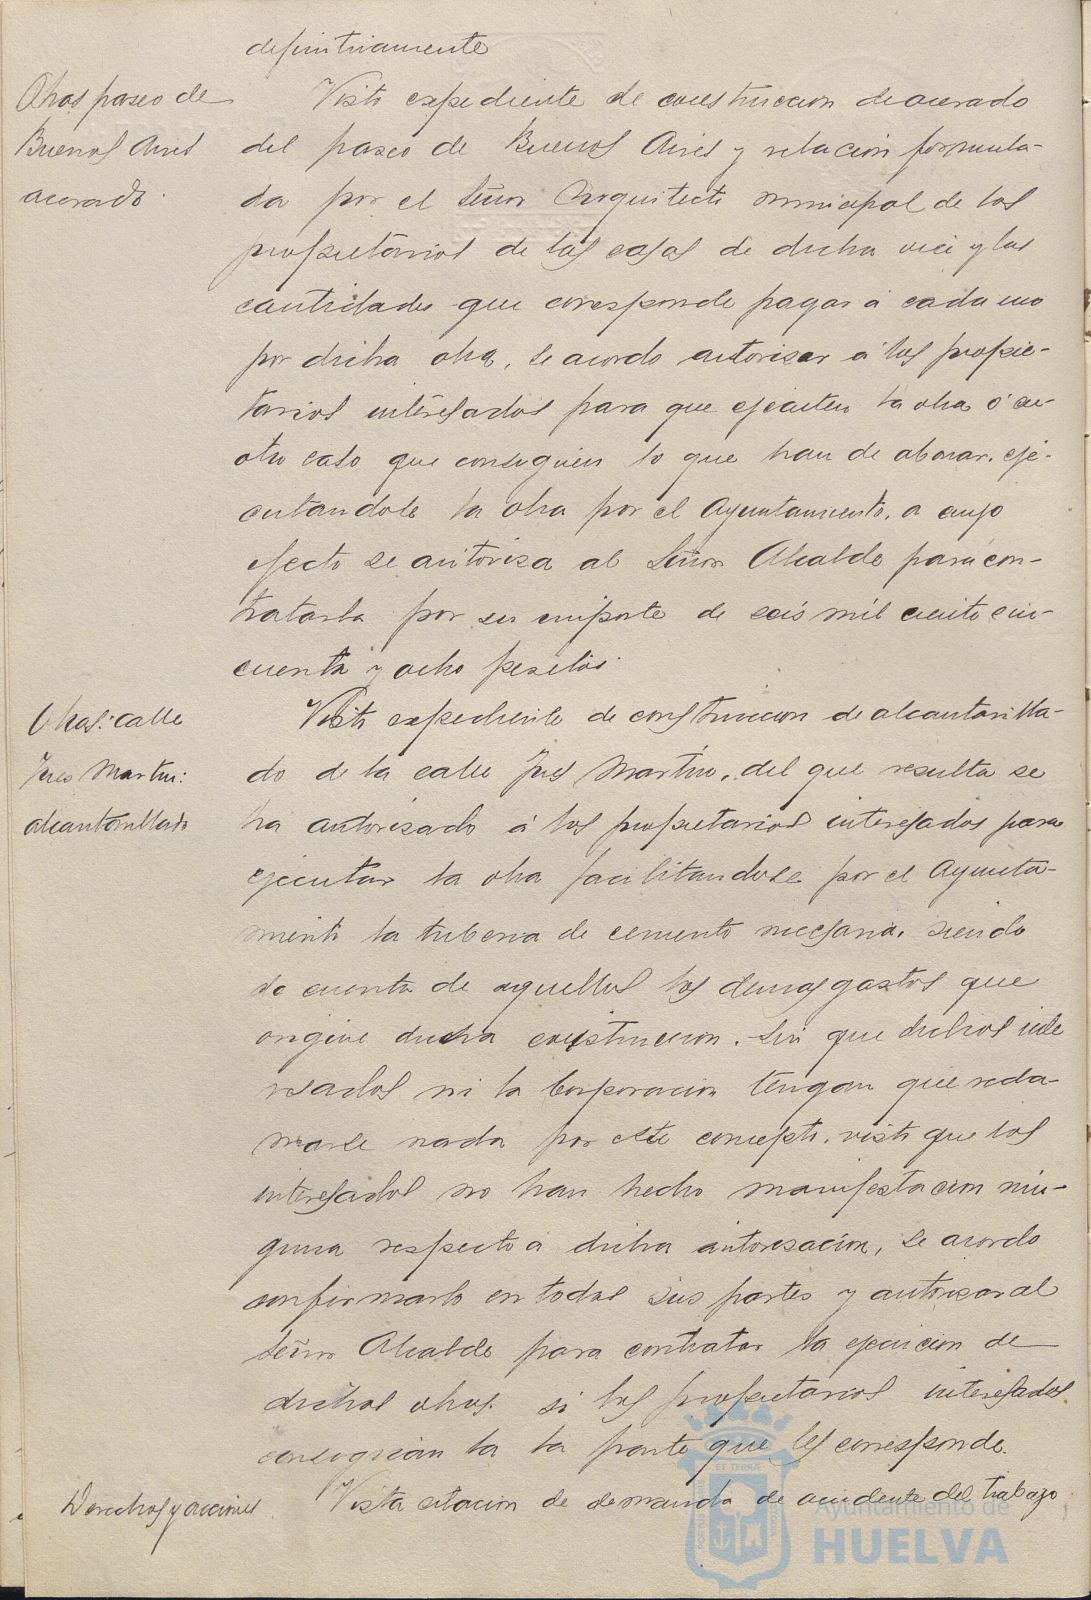 definitivamente
Obras paseo de
Buenos Aires
acerado.
Visto expediente de construccion de acerado
del paseo de Buenos Aires y relacion formula-
da por el Señor Arquitecto municipal de los
propietarios de las casas de dicha via y las
cantidades que corresponde pagar á cada uno
por dicha obra, se acordo autorizar á los propie-
tarios interesados para que ejecuten la obra ó en
otro caso que consignen lo que han de abonar, eje-
cutandole la obra por el Ayuntamiento, a cuyo
efecto se autoriza al Señor Alcalde para con-
tratarla por su importe de seis mil ciento cin-
cuenta y ocho pesetas.
Obras: calle
Ines Martin:
alcantarillado
Visto expediente de construccion de alcantarilla-
do de la calle Ines Martin, del que resulta se
ha autorizado á los propietarios interesados para
ejecutar la obra facilitandole por el Ayunta-
miento la tuberia de cemento necesaria, siendo
de cuenta de aquellos los demas gastos que
origine dicha construccion, sin que dichos inte
resados ni la Corporacion tengan que recla-
marse nada por este concepto, visto que los
interesados no han hecho manifestacion nin-
guna respecto a dicha autorizacion, se acordo
confirmarlo en todas sus partes y autorizar al
Señor Alcalde para contratar la ejecucion de
dichas obras si los propietarios interesados
consignan la la parte que les corresponde.
Derechos y acciones
Vista citacion de demanda de accidente del trabajo
Ayuntamiento de
HUELVA